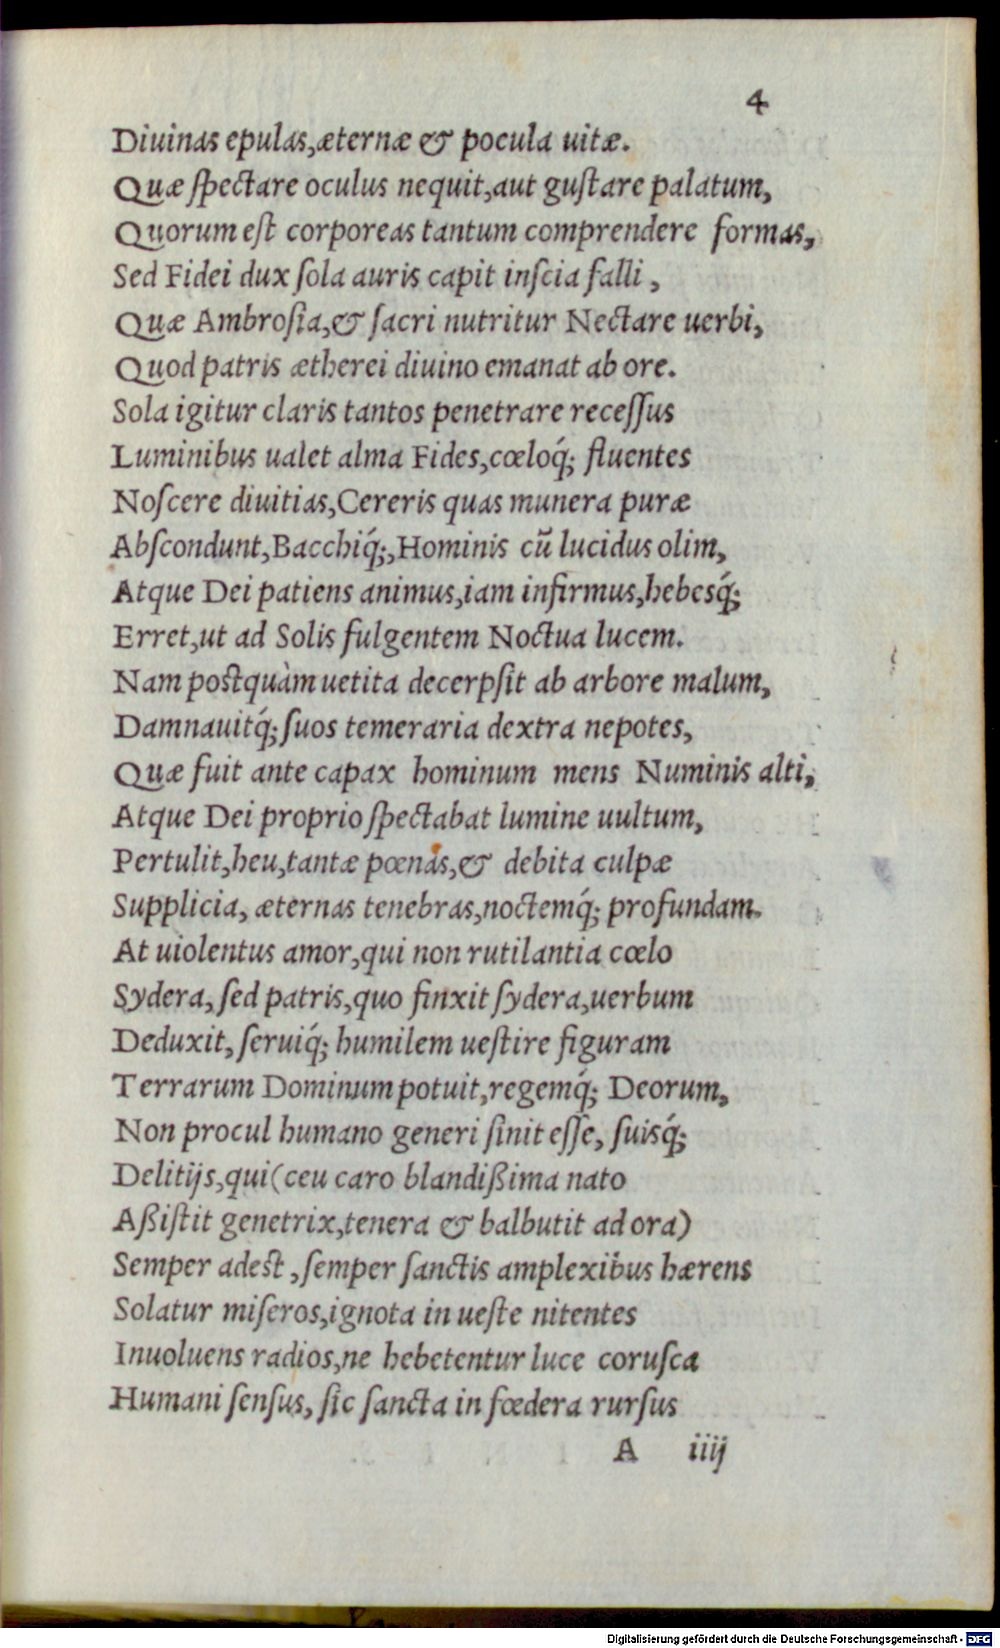 4
Diuinas epulas,æternæ & pocula uitæ.
Quæ ſpectare oculus nequit,aut guſtare palatum,
Quorum eſt corporeas tantum comprendere formas,
Sed Fidei dux ſola auris capit inſcia falli ,
Quæ Ambroſia,& ſacri nutritur Nectare uerbi,
Quod patris ætherei diuino emanat ab ore.
Sola igitur claris tantos penetrare receſſus
Luminibus ualet alma Fides,cœloq́; fluentes
Noſcere diuitias,Cereris quas munera puræ
Abſcondunt,Bacchiq́;,Hominis cū lucidus olim,
Atque Dei patiens animus,iam infirmus,hebesq́;
Erret,ut ad Solis fulgentem Noctua lucem.
Nam postquàm uetita decerpſit ab arbore malum,
Damnauitq́; ſuos temeraria dextra nepotes,
Quæ fuit ante capax hominum mens Numinis alti,
Atque Dei proprio ſpectabat lumine uultum,
Pertulit,heu,tantæ pœnas,& debita culpæ
Supplicia, æternas tenebras,noctemq́; profundam.
At uiolentus amor,qui non rutilantia cœlo
Sydera, ſed patris,quo finxit ſydera,uerbum
Deduxit, ſeruiq́; humilem ueſtire figuram
Terrarum Dominum potuit,regemq́; Deorum,
Non procul humano generi ſinit eſſe, ſuisq́;
Delitijs,qui(ceu caro blandißima nato
Aßiſtit genetrix,tenera & balbutit ad ora)
Semper adest ,ſemper ſanctis amplexibus hærens
Solatur miſeros,ignota in ueſte nitentes
Inuoluens radios,ne hebetentur luce coruſca
Humani ſenſus, ſic ſancta in fœdera rurſus
A iiij
Digitalisierung gefördert durch die Deutsche Forschungsgemeinschaft - DFG